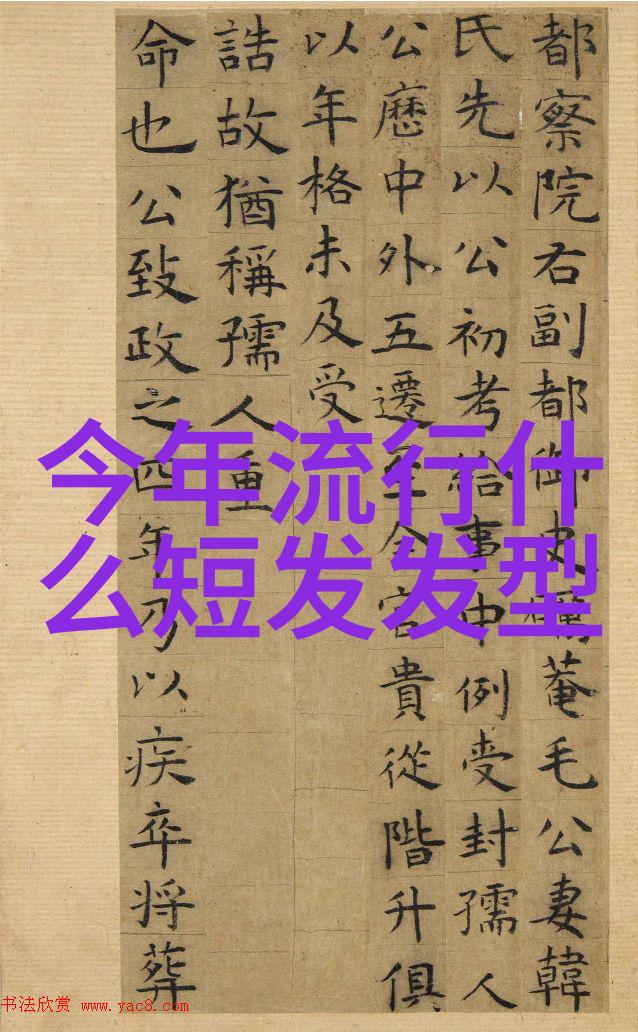 都察院右副都御史礪菴毛公妻韓
氏先以公初考給事中例受封孺人
公歷中外五遷至今官貴從階升俱
以年格未及受
誥故猶稱孺人重
命也公致政之四年乃以疾卒將葬
今年流行什
么短发发型
书法欣赏 www.yac8.com